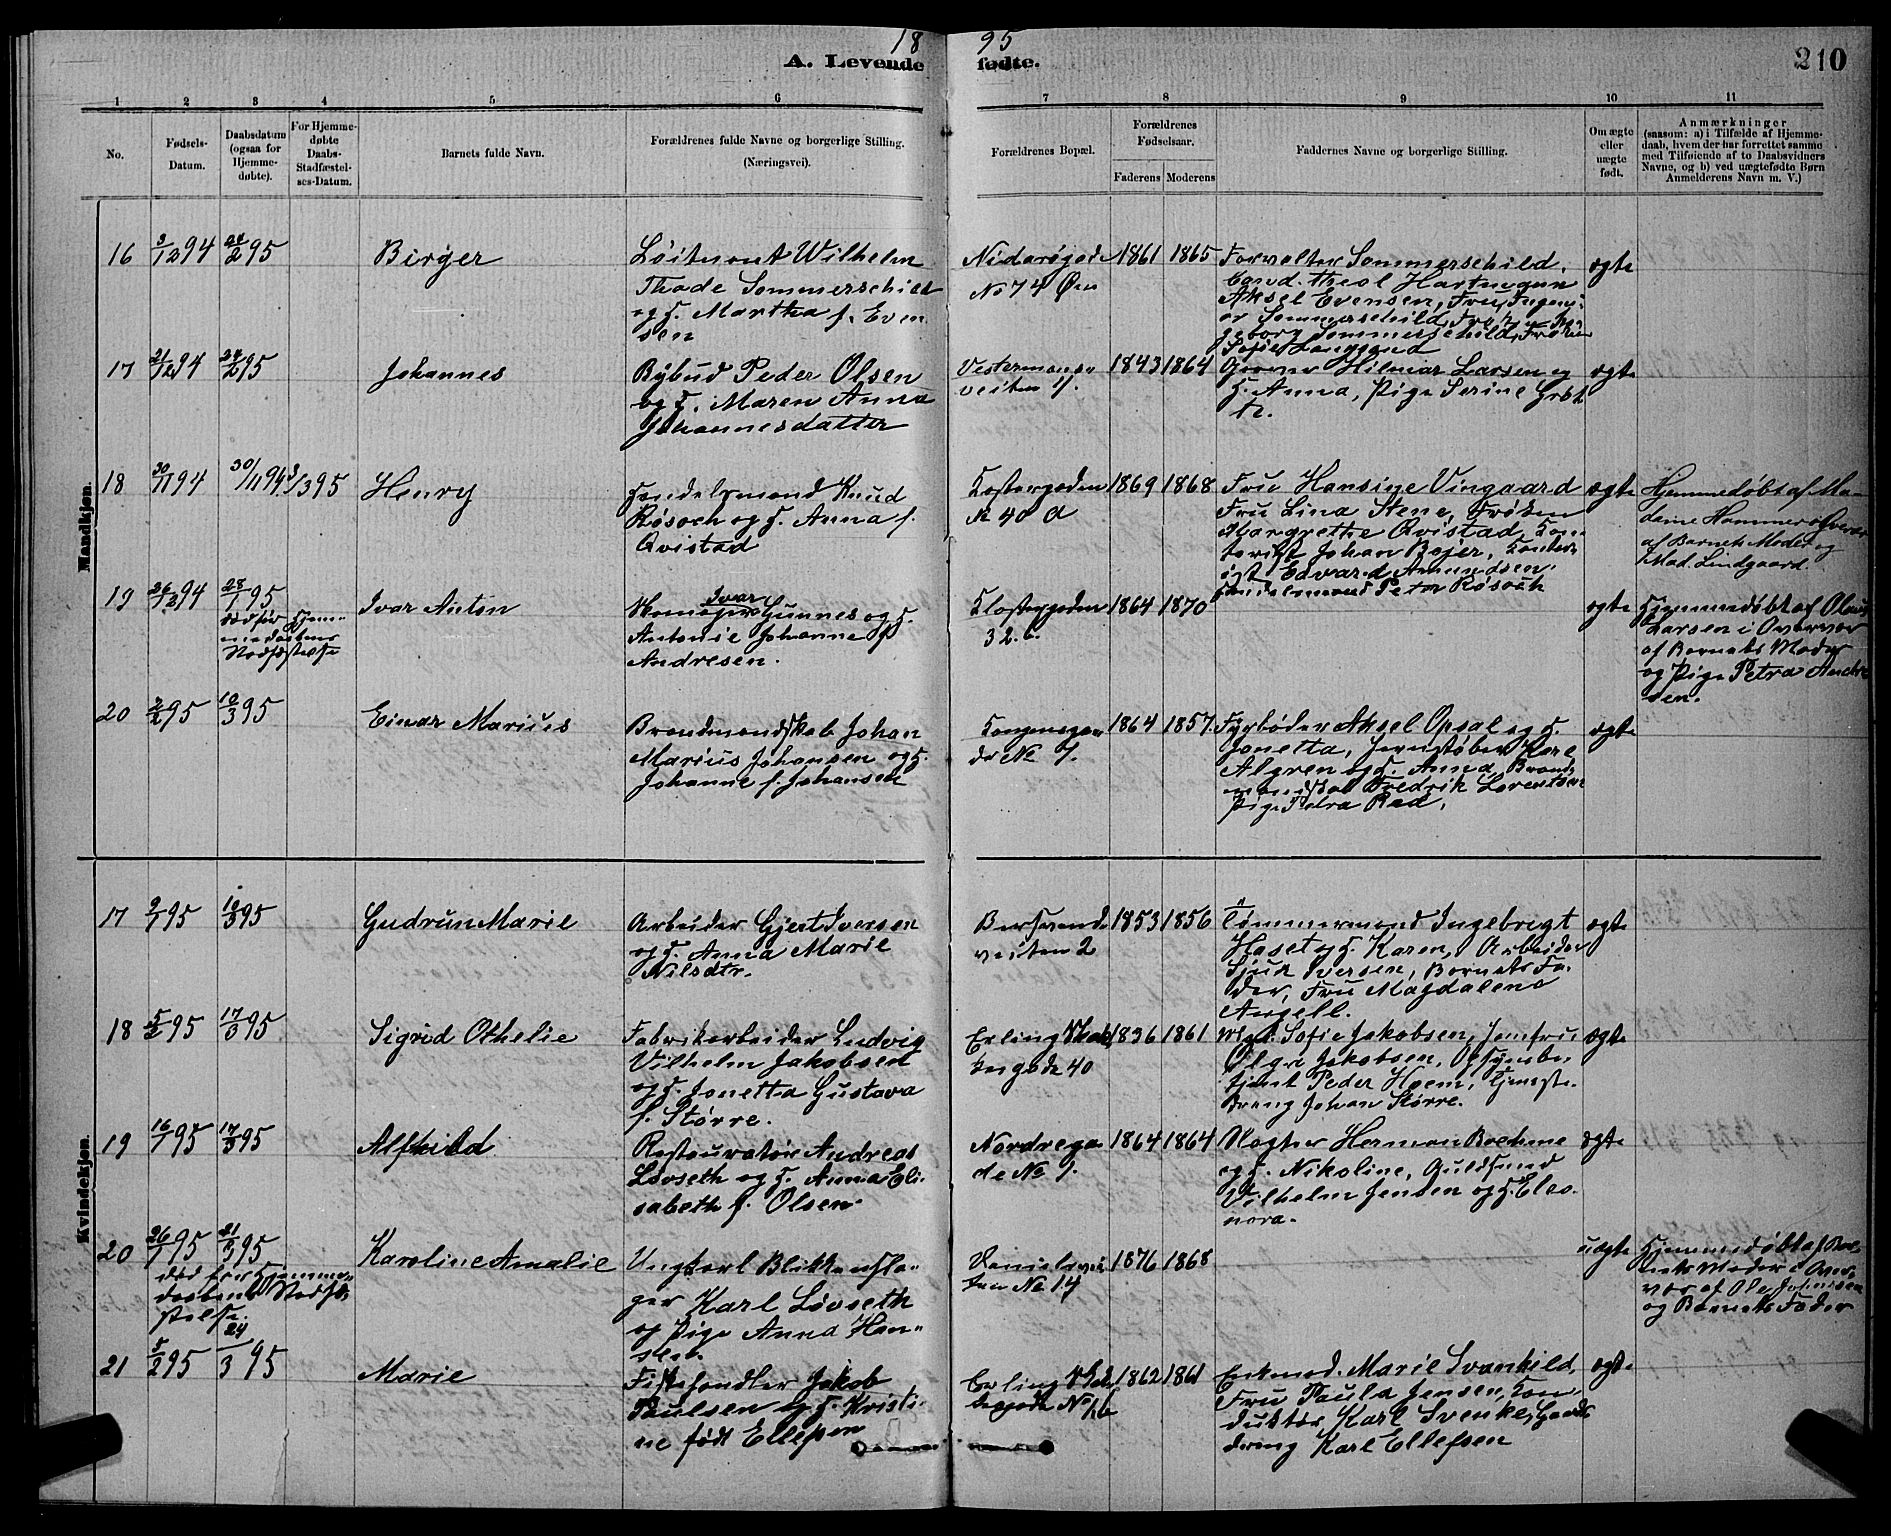 18 95
A. Levende fødte.
210
1 2 3 4 5 6 7 8 9 10 11
No.
Fødsels-
Datum.
Daabsdatum
(ogsaa for
Hjemme-
døbte).
For Hjemme-
døbte
Daabs-
Stadfæstel-
ses-Datum.
Barnets fulde Navn.
Forældrenes fulde Navne og borgerlige Stilling.
(Næringsvei).
Forældrenes Bopæl.
Forældrenes
Fødselsaar.
Faderens Moderens
Faddernes Navne og borgerlige Stilling.
Om ægte
eller
uægte
født.
Anmærkninger
(saasom: a) i Tilfælde af Hjemme-
daab, hvem der har forrettet samme
med Tilføiende af to Daabsvidners
Navne, og b) ved uægtefødte Børn
Anmelderens Navn m. V.)
Mandkjøn.
16
3/12 94
24/2 95
Birger
Løitnant Wilhelm
Thode Sommerschild
og H. Martha f. Even-
sen
No 74 Øen
1861 1865
Forvalter Sommerschild,
Cand. theol Hartmann
Aksel Evensen, Fru
Sommerschild,
Sommerschild, Frøken
ægte
17
21/12 94
24/2 95
Johannes
Bybud Peder Olsen
og H. Maren Anna
Johannesdatter
Vestermans-
veiten 7.
1843 1864
Hilmar Larsen og
H. Anna, Pige Serine
ægte
18
30/11 94
30/11 94
3/3 95
Henry
Handelsmand Knud
Røsoch og H. Anna f.
Qvistad
No 40 a
1869 1868
Fru Hansine Vingaard
Fru Lina Stene, Frøken
Margrethe Qvistad, Kon-
torist Johan Bojer,
Edvard Amundsen
Handelsmand Peter Røsoch
ægte
Hjemmedøbt af Ma-
dame
af Barnets Moder og
Mad. Lindgaard.
19
26/12 94
28/1 95
død før Hjem-
medaabens
Stadfæstelse
Ivar Anton
Ivar
Gunnes og H.
Antonie Johanne f.
Andresen.
Klostergaden
32.
1864 1870
ægte
Hjemmedøbt af
Larsen i Overvær
af Barnets Moder
og Pige Petra Andre
sen.
20
2/2 95
10/3 95
Einar Marius
Brandmandskab Johan
Marius Johansen og H.
Johanne f. Johansen
Kongensga-
de No 7.
1864 1857
Fyrbøder Aksel Opsal og H.
Jonetta, Jernstøber Kore
Algren og H. Anna, Brand-
mandskab Fredrik Lorentsen
Pige Petra
ægte
Kvindekjøn.
17
9/1 95
10/3 95
Gudrun Marie
Arbeider Gjert Iversen
og H. Anna Marie
Nilsdtr.
veiten 2
1853 1856
Tømmermand Ingebrigt
Haset og H. Karen, Arbeider
Sjur Iversen, Barnets Fa-
der, Fru Magdalene
Angell.
ægte
18
5/2 95
17/3 95
Sigrid Othelie
Fabrikarbeider Ludvig
Vilhelm Jakobsen
og H. Jonetta Gustava
f. Større.
Erling Skak
kesgade 40
1836 1861
Mad. Sofie Jakobsen, Jomfru
Olga Jakobsen, Opsynsbe-
tjent Peder Hoem, Tjeneste-
dreng Johan Større.
ægte
19
16/1 95
17/3 95
Alfhild
Restauratør Andreas
Løvseth og H. Anna Eli-
sabeth f. Olsen.
Nordrega-
de No 1.
1864 1864
Slagter Herman Boehme
og H. Nikoline, Guldsmed
Vilhelm Jensen og H. Eleo-
nora.
ægte
20
26/1 95
21/3 95
død før Hjemme-
daabens Stadfæ-
stelse.
Karoline Amalie
Ungkarl Blikkensla-
ger Karl Løvseth
og Pige Anna Han-
sen.
Danielsvei
ten No 14
1876 1868
uægte
Hjemmedøbt af Bar-
nets Moder i Over-
vær af Ole Johnssen
og Barnets Fader
21
5/2 95
24/3 95
Marie
Fiskehandler Jakob
Paulsen og H. Kristi-
ne født Ellefsen
Erling Skak
kesgade No 16
1862 1861
Enkemad. Marie Svanhild,
Fru Paula Jensen, Kon-
duktør Karl Svenke, Gaards
dreng Karl Ellefsen
ægte